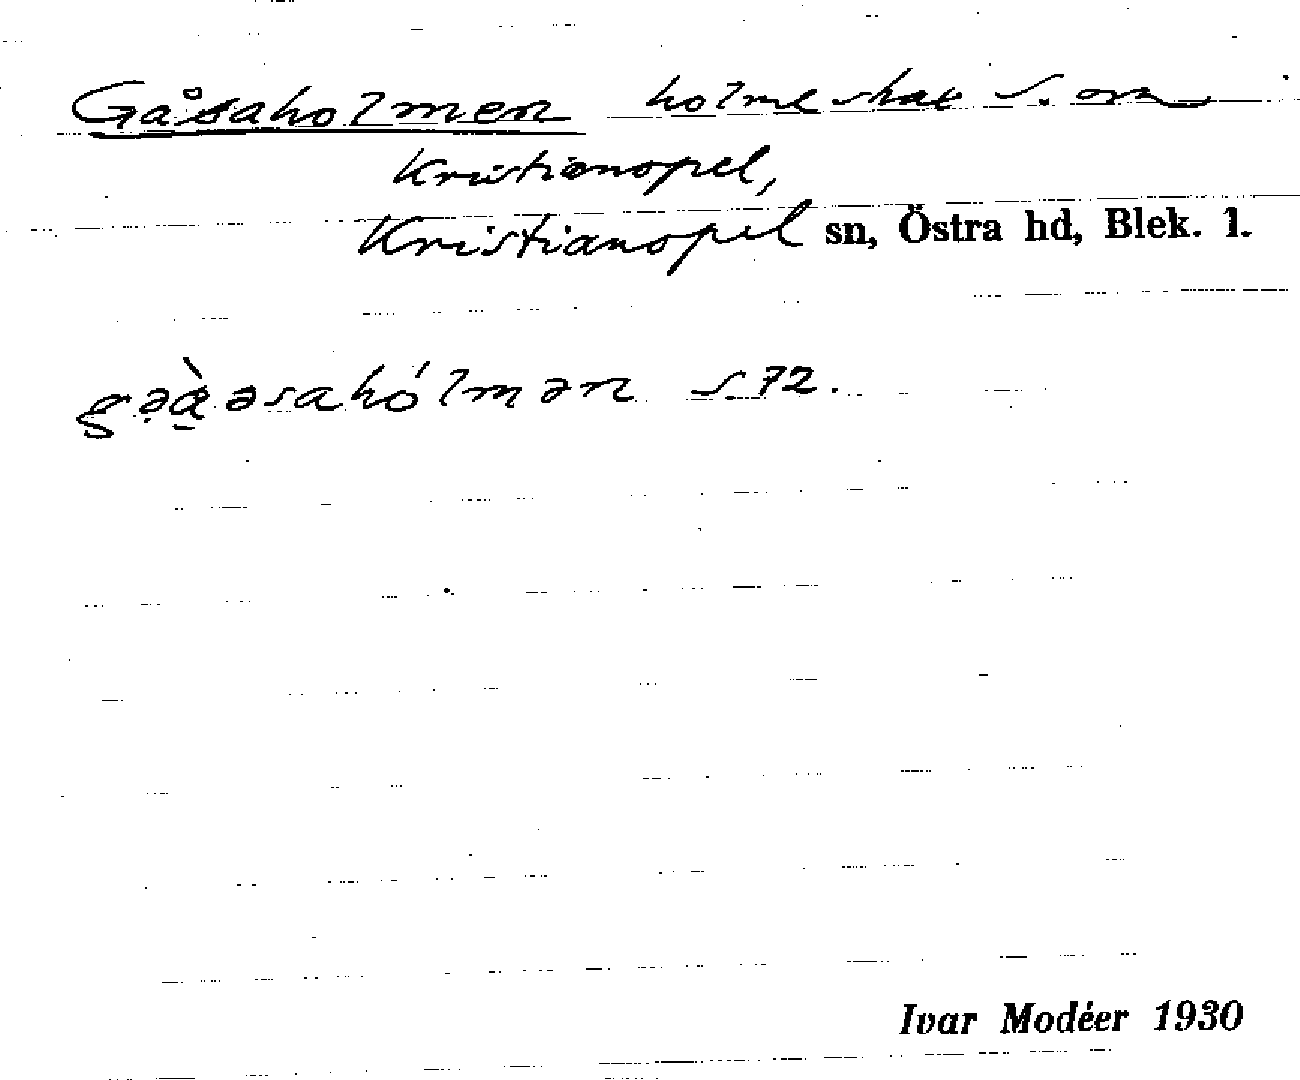 Gåsaholmen holme skat S. om
Kristianopel,
Kristianopel sn, Östra hd, Blek. l.
gə̣à̱əsahólmən S 72.
Ivar Modéer 1930